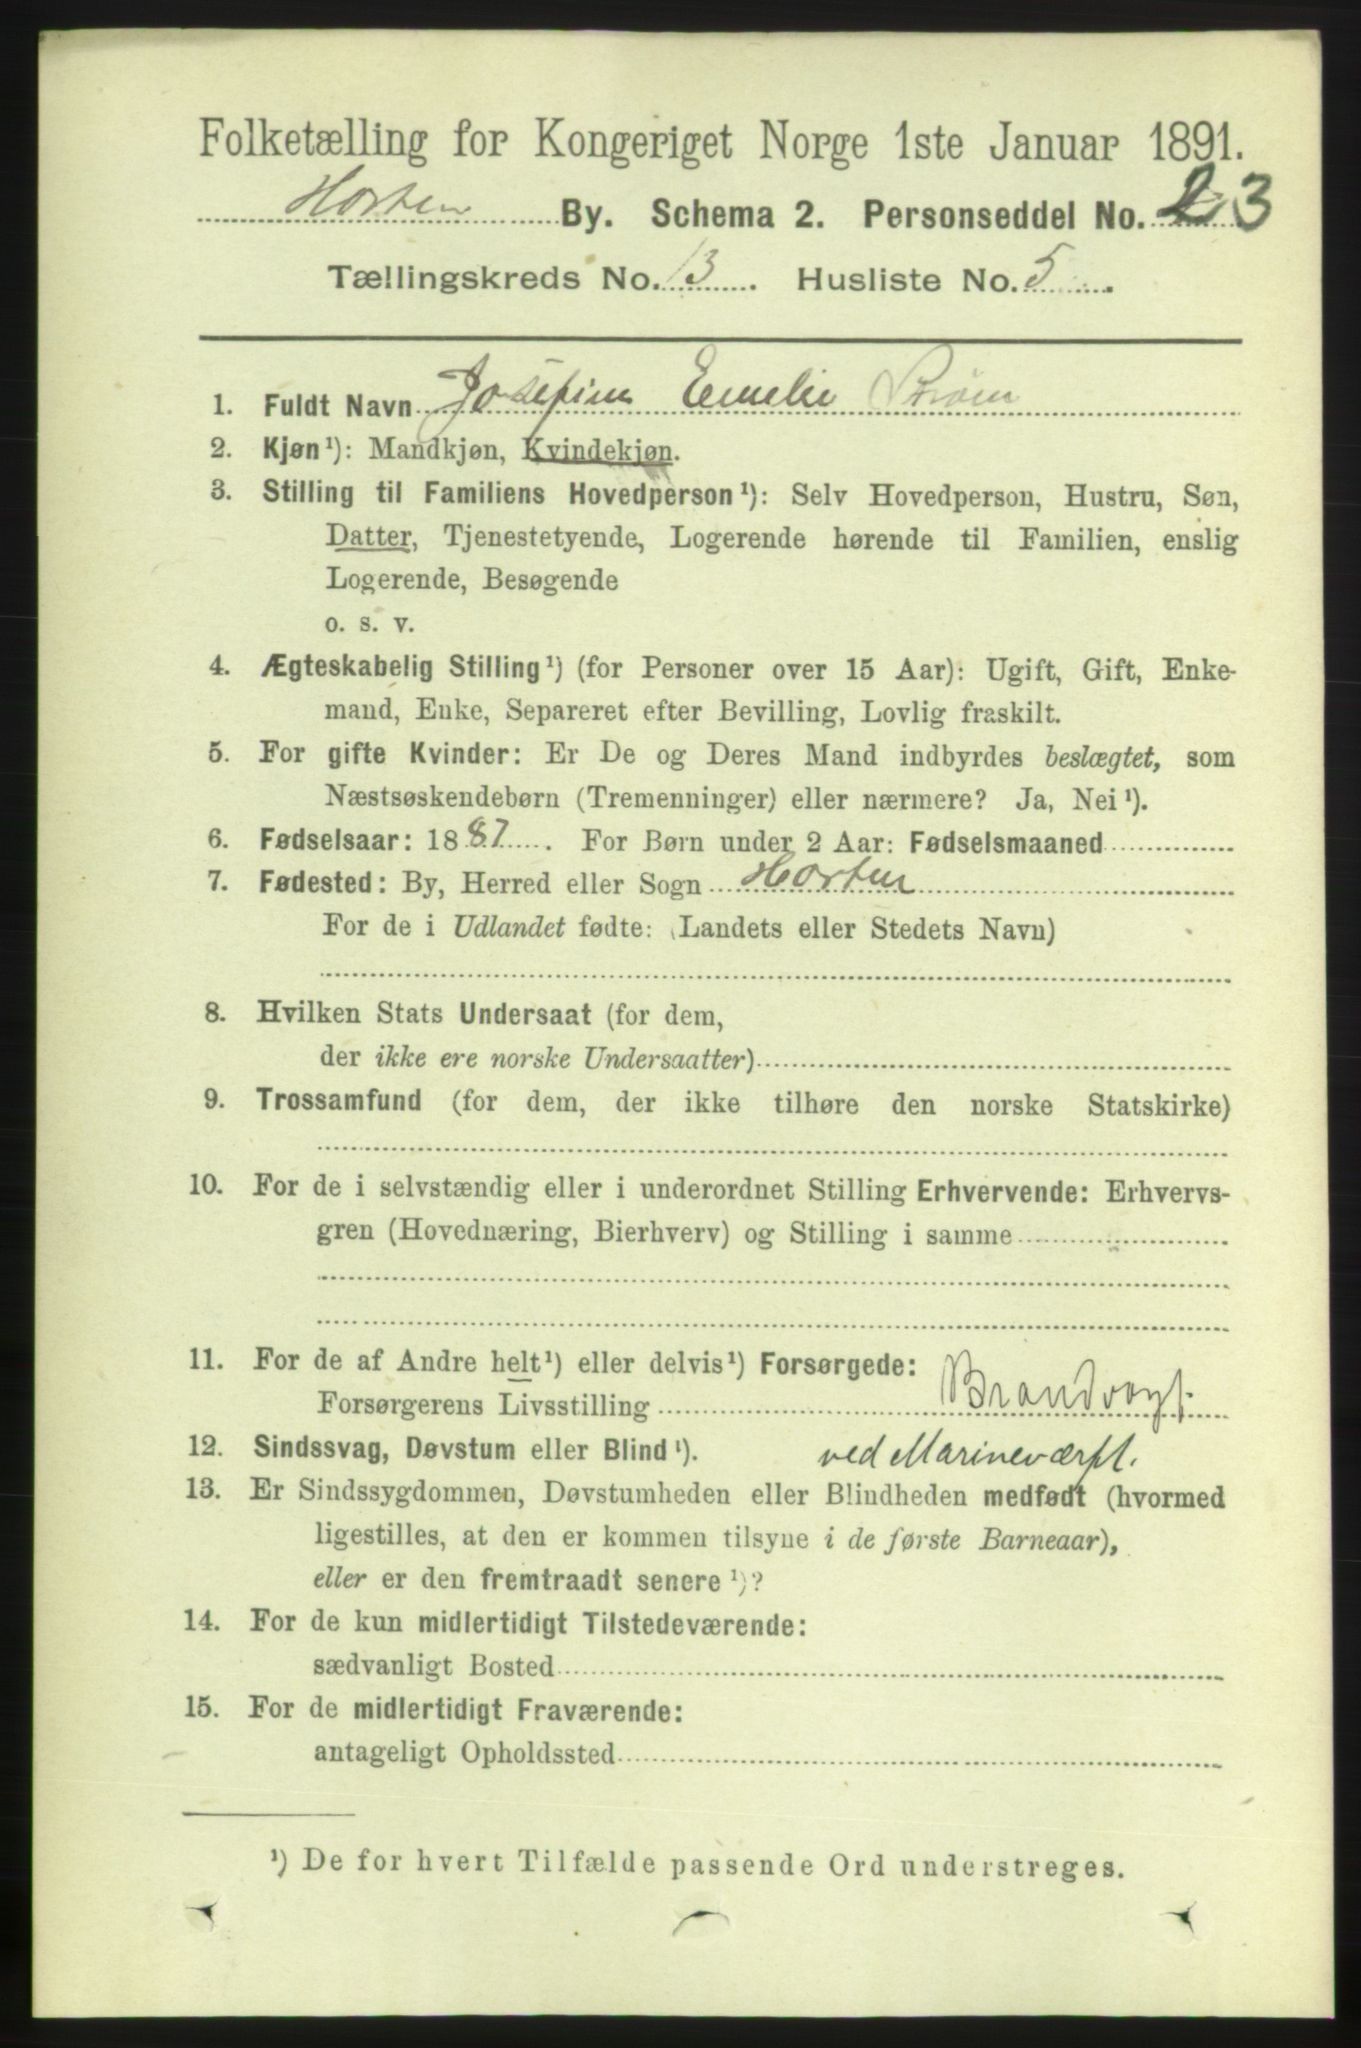 Folketælling for Kongeriget Norge 1ste Januar 1891.
Horten By. Schema 2. Personseddel No. 23
Tællingskreds No. 13. Husliste No. 5.
1. Fuldt Navn Josefine Emelie Strøm
2. Kjøn¹): Mandkjøn, Kvindekjøn.
3. Stilling til Familiens Hovedperson¹): Selv Hovedperson, Hustru, Søn,
Datter, Tjenestetyende, Logerende hørende til Familien, enslig
Logerende, Besøgende
o. s. v.
4. Ægteskabelig Stilling¹) (for Personer over 15 Aar): Ugift, Gift, Enke-
mand, Enke, Separeret efter Bevilling, Lovlig fraskilt.
5. For gifte Kvinder: Er De og Deres Mand indbyrdes beslægtet, som
Næstsøskendebørn (Tremenninger) eller nærmere? Ja, Nei¹).
6. Fødselsaar: 1887. For Børn under 2 Aar: Fødselsmaaned
7. Fødested: By, Herred eller Sogn Horten
For de i Udlandet fødte: (Landets eller Stedets Navn)
8. Hvilken Stats Undersaat (for dem,
der ikke ere norske Undersaatter)
9. Trossamfund (for dem, der ikke tilhøre den norske Statskirke)
10. For de i selvstændig eller i underordnet Stilling Erhvervende: Erhvervs-
gren (Hovednæring, Bierhverv) og Stilling i samme
11. For de af Andre helt¹) eller delvis¹) Forsørgede:
Forsørgerens Livsstilling Brandvogt
12. Sindssvag, Døvstum eller Blind¹). ved Marineværft.
13. Er Sindssygdommen, Døvstumheden eller Blindheden medfødt (hvormed
ligestilles, at den er kommen tilsyne i de første Barneaar),
eller er den fremtraadt senere¹)?
14. For de kun midlertidigt Tilstedeværende:
sædvanligt Bosted
15. For de midlertidigt Fraværende:
antageligt Opholdssted
¹) De for hvert Tilfælde passende Ord understreges.